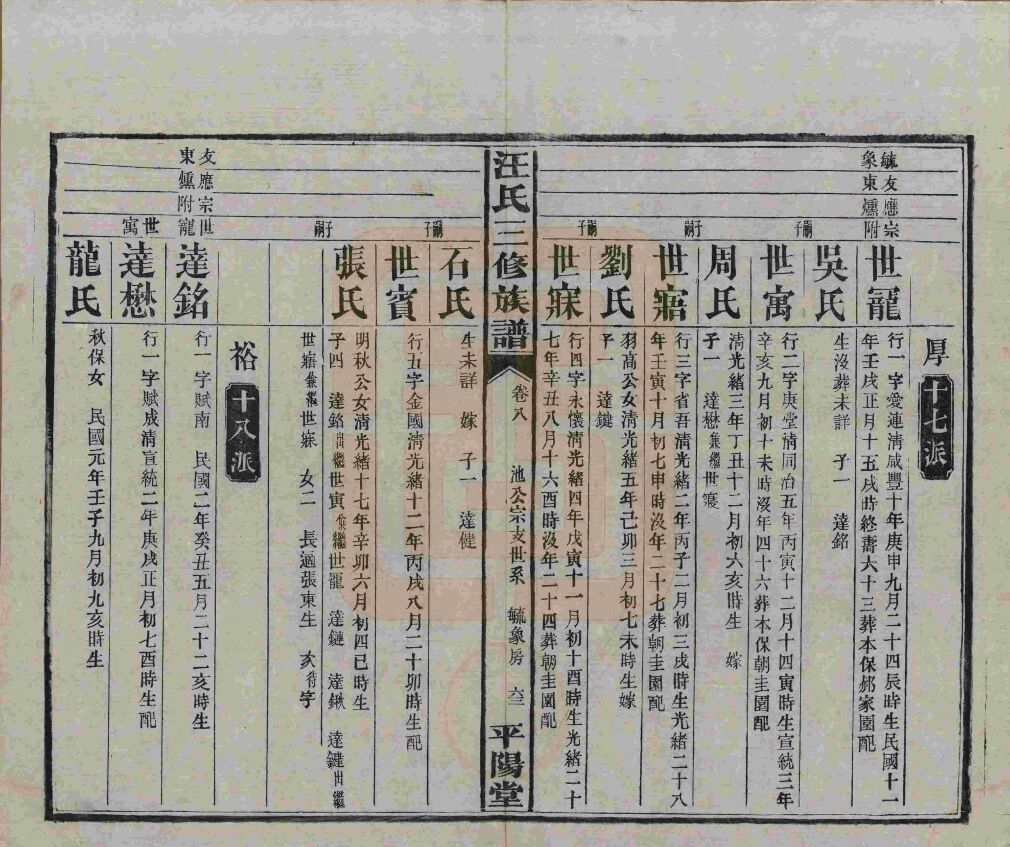 毓象
友東
應爐
宗附
厚
十七派
世寵
行一字愛連清咸豐十年庚申九月二十四辰時生民國十一
年壬戌正月十五戌時終壽六十三葬本保郝家園配
吳氏
生沒葬未詳 子一 達銘
嗣子
世寓
行二字庚堂清同治五年丙寅十二月十四寅時生宣統三年
辛亥九月初十未時沒年四十六葬本保朝圭園配
周氏
清光緒三年丁丑十二月初六亥時生 嫁
子一 達懋兼繼世寔
嗣子
世寤
行三字省吾清光緒二年丙子二月初三戌時生光緒二十八
年壬寅十月初七申時沒年二十七葬朝圭園配
劉氏
羽高公女清光緒五年己卯三月初七未時生嫁
子一 達鍵
嗣子
世寐
行四字永懷清光緒四年戊寅十一月初十酉時生光緒二十
七年辛丑八月十六酉時沒年二十四葬朝圭園配
汪氏三修族譜
卷八
池公宗支世系 毓象房 六三
平陽堂
石氏
生未詳 嫁 子一 達健
嗣子
世賓
行五字金國清光緒十二年丙戌八月二十卯時生配
張氏
明秋公女清光緒十七年辛卯六月初四巳時生
子四 達銘出繼世寅兼繼世寵 達鏈 達鍬 達鍵出繼
世寤兼繼世寐 女二 長適張東生 次待字
嗣子
裕
十八派
友東
應爐
宗附
世寵
達銘
行一字賦南 民國二年癸丑五月二十二亥時生
世寓
達懋
行一字賦成清宣統二年庚戌正月初七酉時生配
龍氏
秋保女 民國元年壬子九月初九亥時生